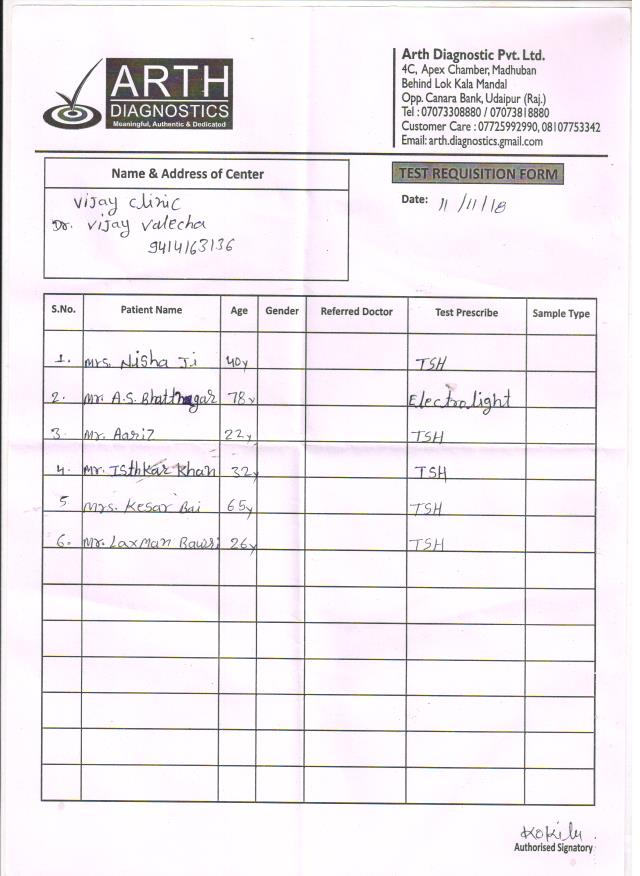 ARTH
DIAGNOSTICS
Meaningful, Authentic & Dedicated
Arth Diagnostic Pvt. Ltd.
4C, Apex Chamber, Madhuban
Behind Lok Kala Mandal
Opp. Canara Bank, Udaipur (Raj.)
Tel : 07073308880 / 07073818880
Customer Care : 07725992990, 08107753342
Email: arth.diagnostics.gmail.com
Name & Address of Center
Vijay Clinic
Dr. Vijay Valecha
9414163136
TEST REQUISITION FORM
Date: 11/11/18
S.No. Patient Name Age Gender Referred Doctor Test Prescribe Sample Type
1. Mrs. Nisha Ji 40y TSH
2. Mr. A.S. Bhatthagar 78y Electrolight
3. Mr. Aariz 22y TSH
4. Mr. Isthkar Khan 32y TSH
5. Mrs. Kesar Bai 65y TSH
6. Mr. Laxman Bawri 26y TSH
Authorised Signatory